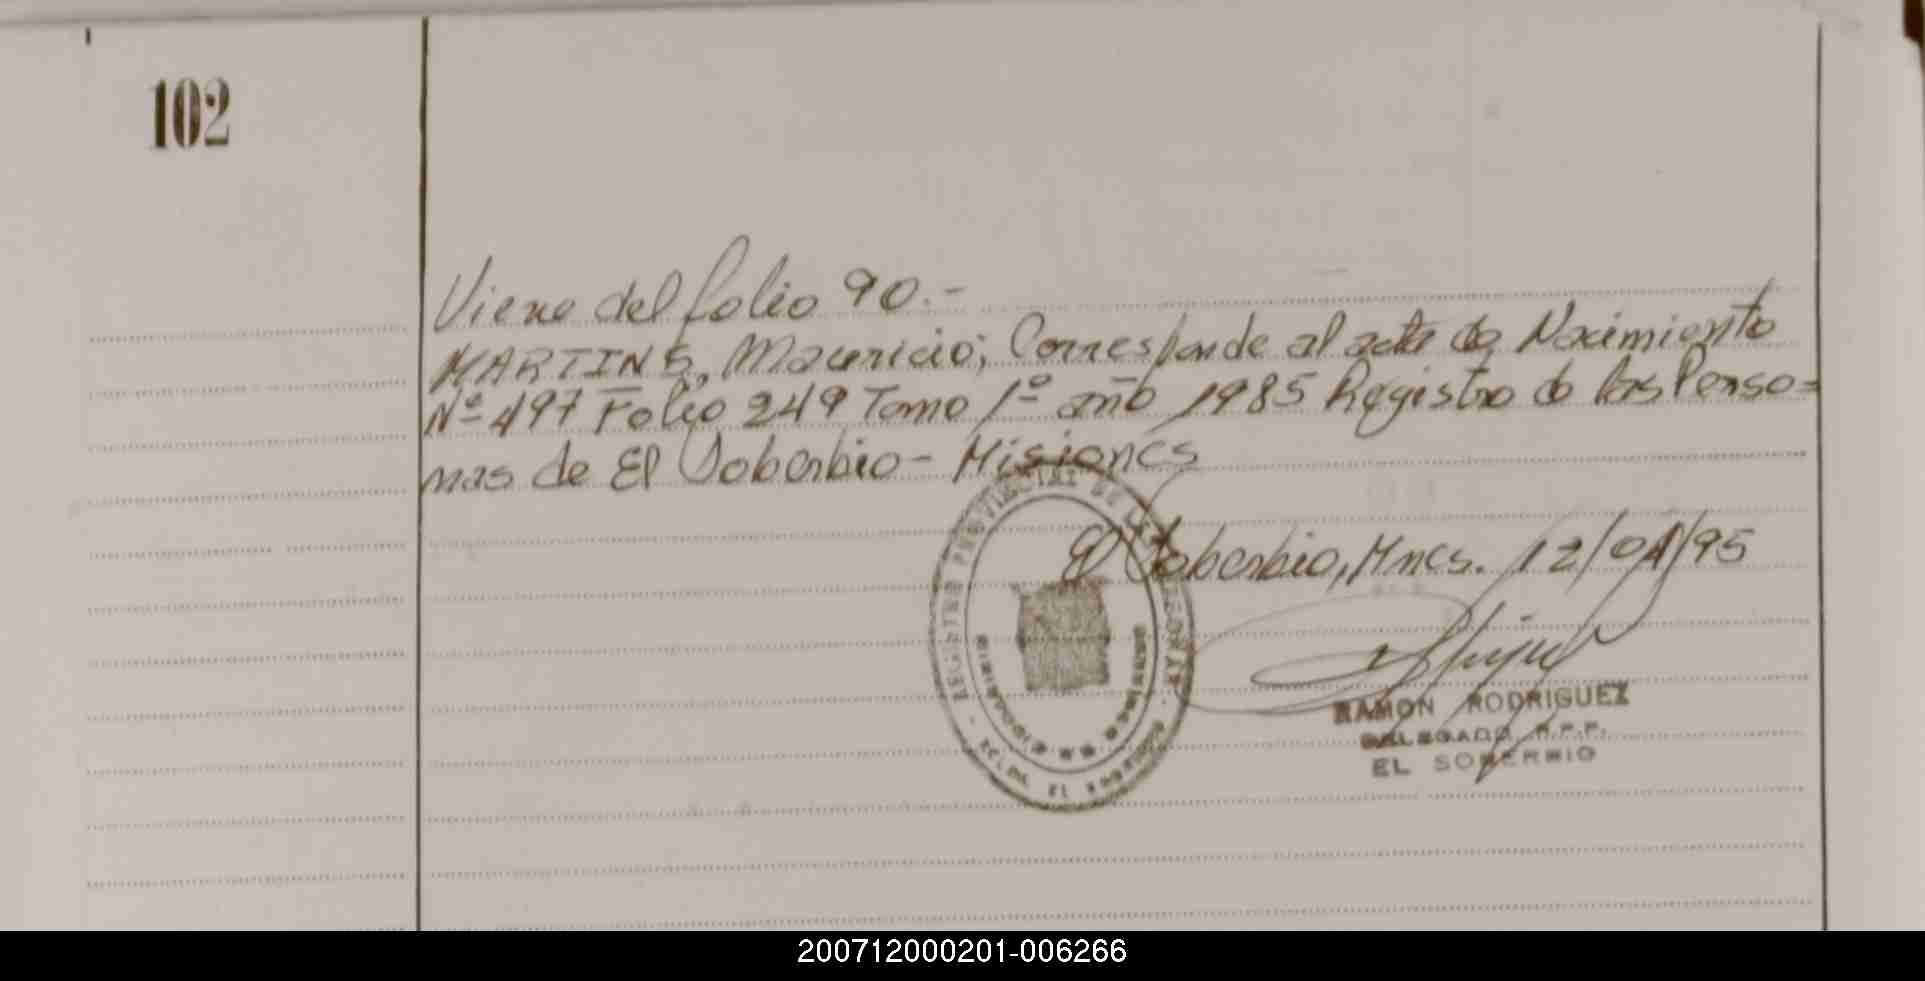 102
Viene del folio 90.-
MARTINS, Mauricio; Corresponde al acta de Nacimiento
Nº 497 Folio 249 Tomo 1º año 1985 Registro de las Perso=
nas de El Soberbio - Misiones
REGISTRO PROVINCIAL DE LAS PERSONAS
El Soberbio, Mnes. 12/04/95
RAMON RODRIGUEZ
DELEGADO R.P.P.
EL SOBERBIO
200712000201-006266